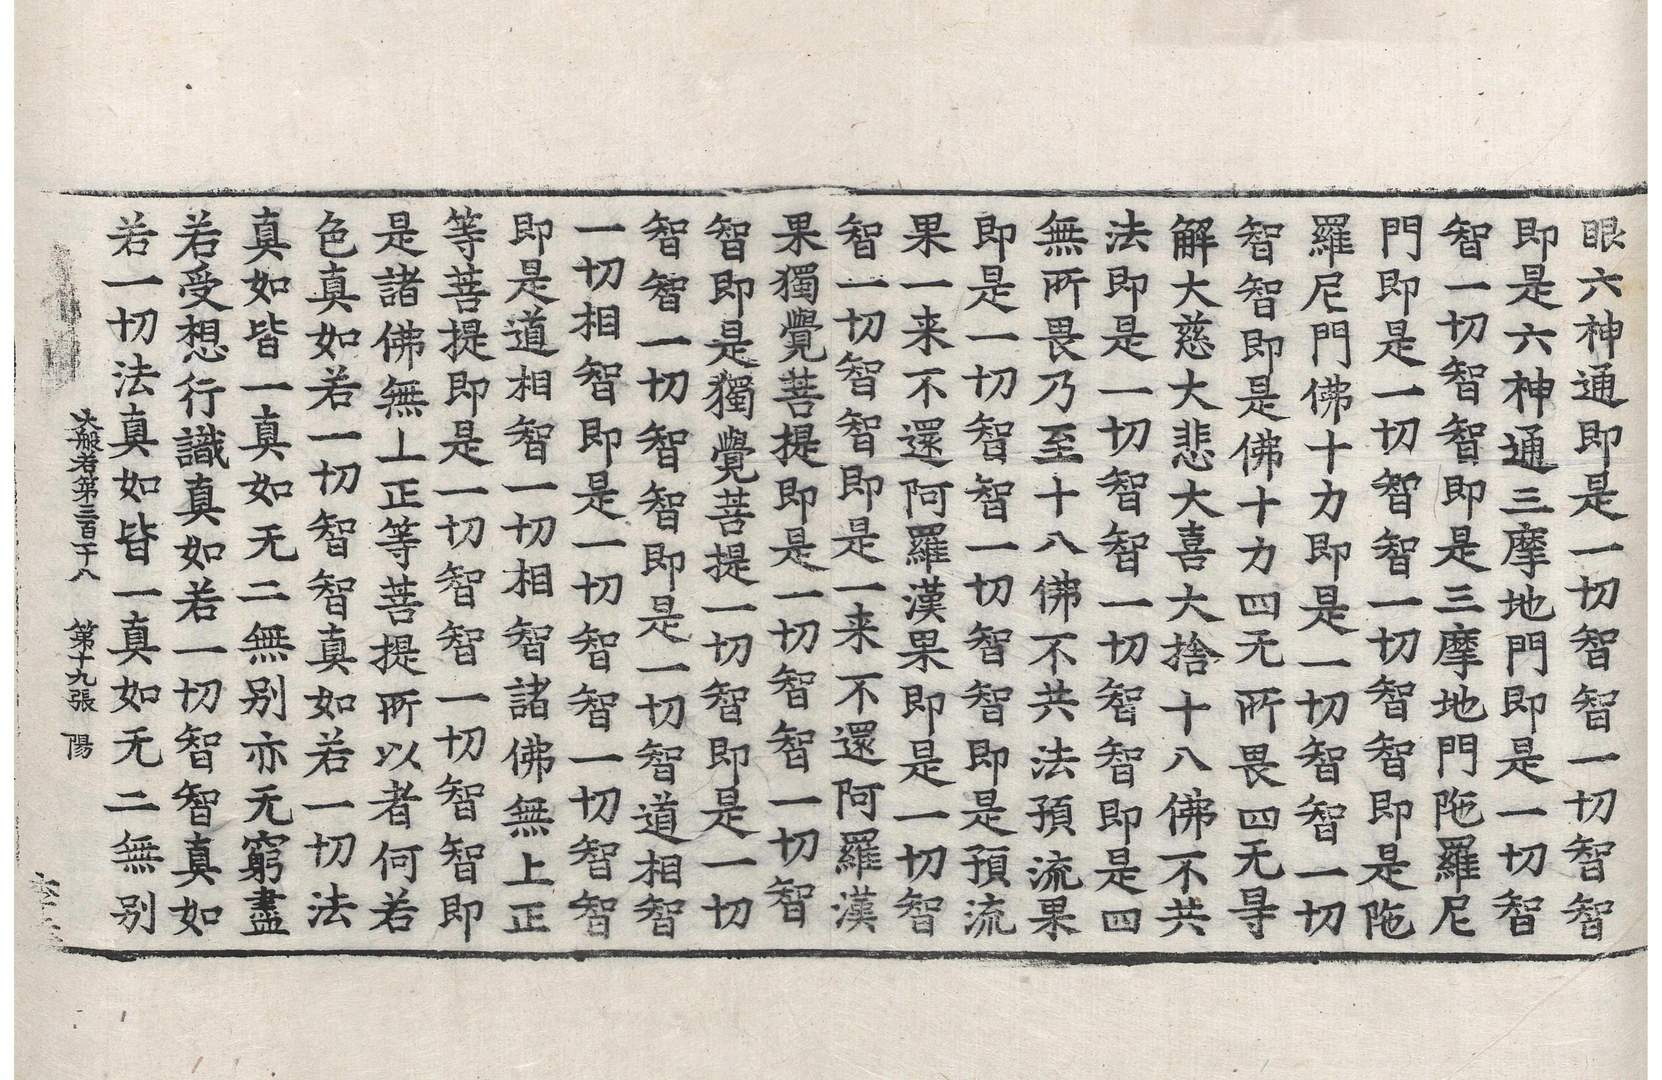 眼六神通即是一切智智一切智智
即是六神通三摩地門即是一切智
智一切智智即是三摩地門陁羅尼
門即是一切智智一切智智即是陁
羅尼門佛十力即是一切智智一切
智智即是佛十力四无所畏四无㝵
解大慈大悲大喜大捨十八佛不共
法即是一切智智一切智智即是四
無所畏乃至十八佛不共法預流果
即是一切智智一切智智即是預流
果一来不還阿羅漢果即是一切智
智一切智智即是一来不還阿羅漢
果獨覺菩提即是一切智智一切智
智即是獨覺菩提一切智即是一切
智智一切智智即是一切智道相智
一切相智即是一切智智一切智智
即是道相智一切相智諸佛無上正
等菩提即是一切智智一切智智即
是諸佛無上正等菩提所以者何若
色真如若一切智智真如若一切法
真如皆一真如无二無別亦无窮盡
若受想行識真如若一切智智真如
若一切法真如皆一真如无二無別
大般若第三百一十八 第十九張 陽